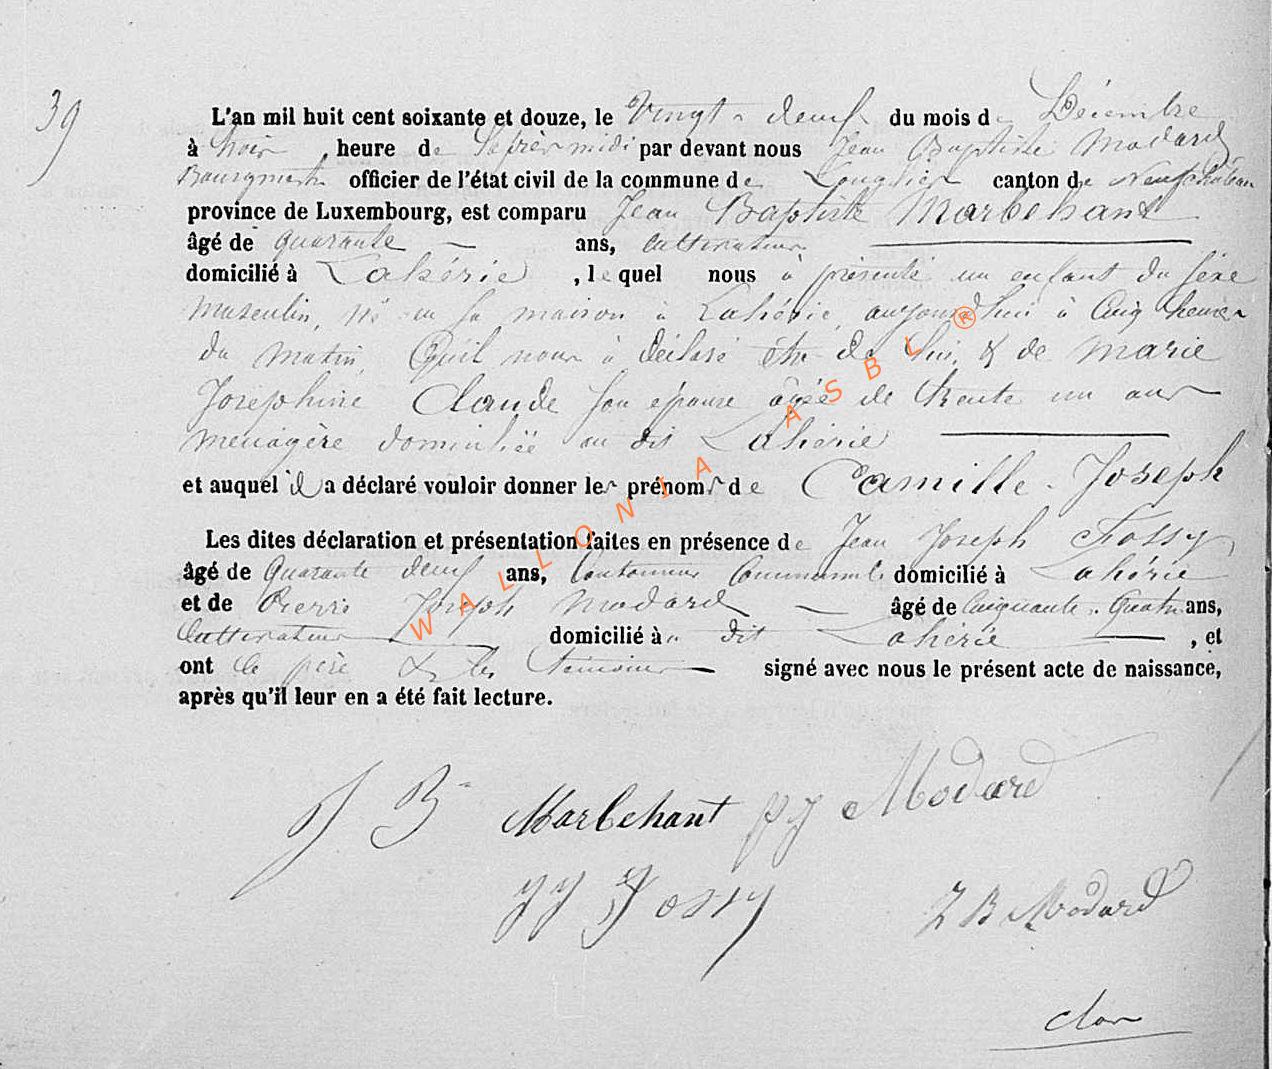 39
L'an mil huit cent soixante et douze, le Vingt-neuf du mois de Décembre
à trois heure de l'après midi par devant nous Jean Baptiste Modard
Bourgmestre officier de l'état civil de la commune de Longlier canton de Neufchâteau
province de Luxembourg, est comparu Jean Baptiste Marbehant
âgé de quarante — ans, Cultivateur
domicilié à Lahérie, lequel nous à présenté un enfant du sexe
masculin, né en sa maison à Lahérie, aujourd'hui à Cinq heures
du matin, Qu'il nous à déclaré être de lui, & de Marie
Joséphine Claude son épouse âgée de trente un ans
ménagère domiciliée au dit Lahérie
et auquel il a déclaré vouloir donner les prénoms de Camille-Joseph
Les dites déclaration et présentation faites en présence de Jean Joseph Fossy
âgé de Quarante neuf ans, Cantonnier Communal domicilié à Lahérie
et de Pierre Joseph Modard — âgé de Cinquante-Quatre ans,
Cultivateur domicilié à au dit Lahérie —, et
ont le père & les témoins — signé avec nous le présent acte de naissance,
après qu'il leur en a été fait lecture.
J Bte Marbehant pj Modard
JJ Fossy J B Modard
clos
WALLONIA ASBL ®